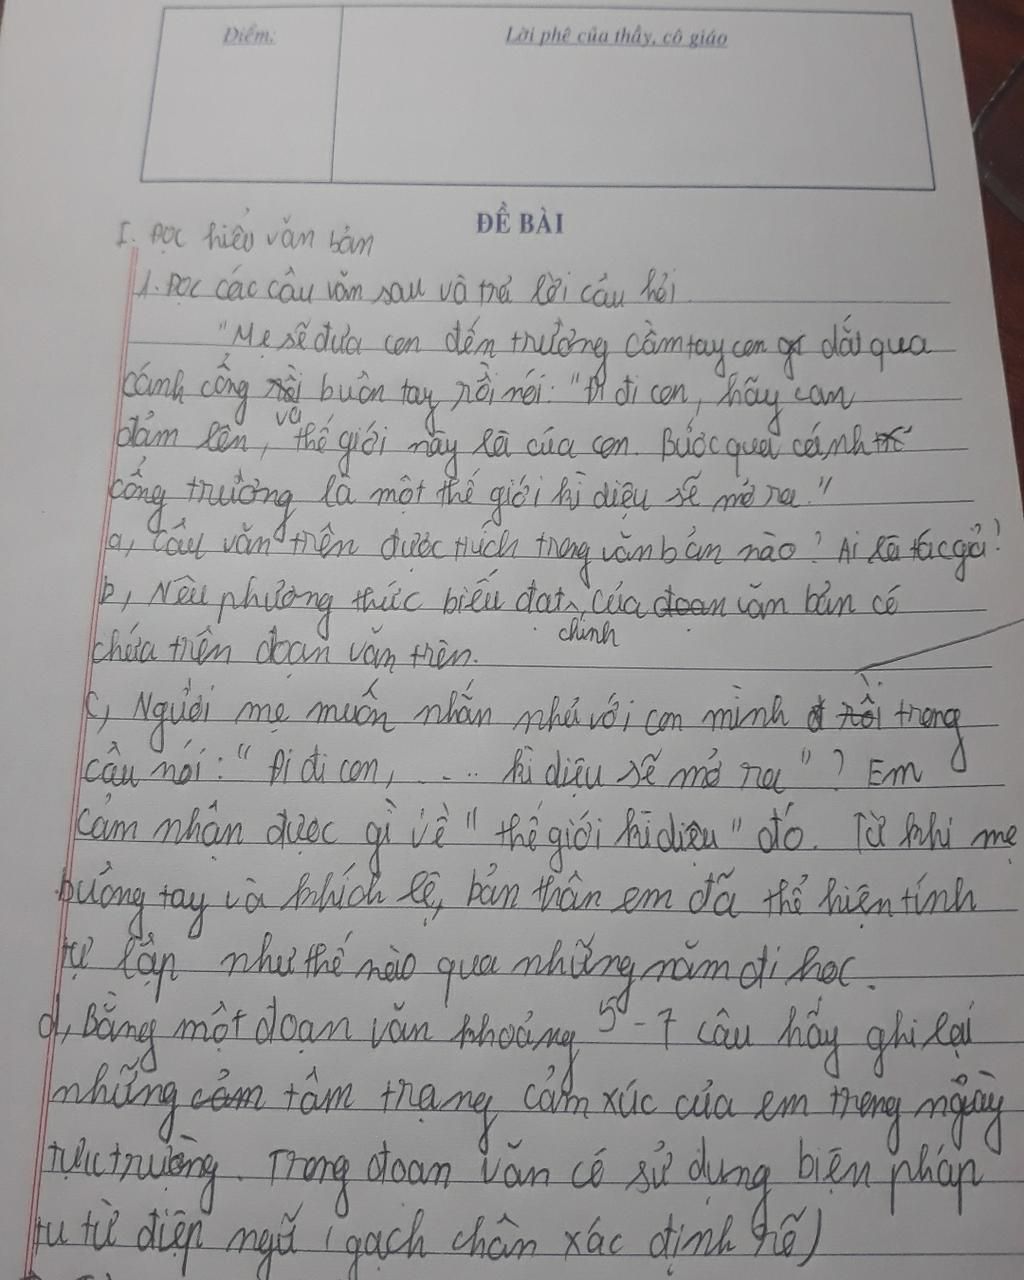 Điểm:
Lời phê của thầy, cô giáo
ĐỀ BÀI
I. Đọc hiểu văn bản
1. Đọc các câu văn sau và trả lời câu hỏi
"Mẹ sẽ đưa con đến trường cầm tay con dắt qua
cánh cổng rồi buôn tay rồi nói: "Đi đi con, hãy can
đảm lên, và thế giới này là của con. Bước qua cánh
cổng trường là một thế giới kì diệu sẽ mở ra."
a, Câu văn trên được trích trong văn bản nào? Ai là tác giả?
b, Nêu phương thức biểu đạt chính của đoạn văn bản có
chứa trên đoạn văn trên.
c, Người mẹ muốn nhắn nhủ với con mình rồi trong
câu nói: "Đi đi con, ..... kì diệu sẽ mở ra"? Em
cảm nhận được gì về "thế giới kì diệu" đó. Từ khi mẹ
buông tay và khích lệ, bản thân em đã thể hiện tính
tự lập như thế nào qua những năm đi học.
d, Bằng một đoạn văn khoảng 5-7 câu hãy ghi lại
những cảm tâm trạng cảm xúc của em trong ngày
tựu trường. Trong đoan văn có sử dụng biện pháp
tu từ điệp ngữ (gạch chân xác định rõ)